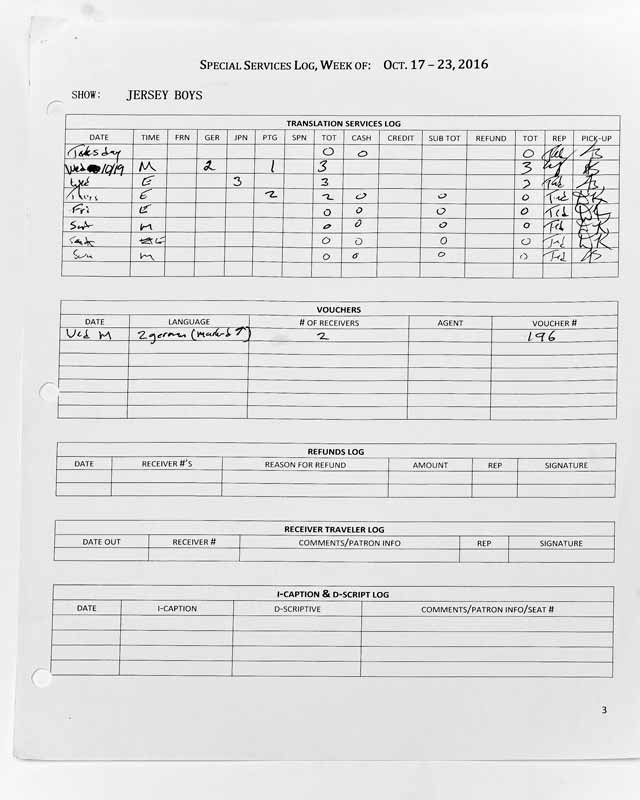 SPECIAL SERVICES LOG, WEEK OF: OCT. 17 – 23, 2016
SHOW: JERSEY BOYS
TRANSLATION SERVICES LOG
DATE TIME FRN GER JPN PTG SPN TOT CASH CREDIT SUB TOT REFUND TOT REP PICK-UP
Tuesday 0 0 0 Ted
Wed 10/19 M 2 1 3 3
Wed E 3 3 Ted
Thurs E 2 2 0 0 0 Ted
Fri E 0 0 0 0 Ted
Sat M 0 0 0 0 Ted
Sat E 0 0 0 0 Ted
Sun M 0 0 0 0 Ted
VOUCHERS
DATE LANGUAGE # OF RECEIVERS AGENT VOUCHER #
Wed M 2 german 2 196
REFUNDS LOG
DATE RECEIVER #'S REASON FOR REFUND AMOUNT REP SIGNATURE
RECEIVER TRAVELER LOG
DATE OUT RECEIVER # COMMENTS/PATRON INFO REP SIGNATURE
I-CAPTION & D-SCRIPT LOG
DATE I-CAPTION D-SCRIPTIVE COMMENTS/PATRON INFO/SEAT #
3